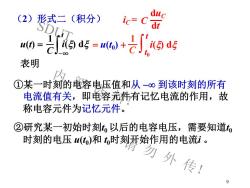 (2) 形式二(积分) i_C = C du_C/dt
u(t) = 1/C ∫_{-∞}^{t} i(ξ) dξ = u(t₀) + 1/C ∫_{t₀}^{t} i(ξ) dξ
表明
①某一时刻的电容电压值和从 -∞ 到该时刻的所有
电流值有关,即电容元件有记忆电流的作用,故
称电容元件为记忆元件。
②研究某一初始时刻t₀ 以后的电容电压,需要知道t₀
时刻的电压 u(t₀)和 t₀时刻开始作用的电流i 。
9